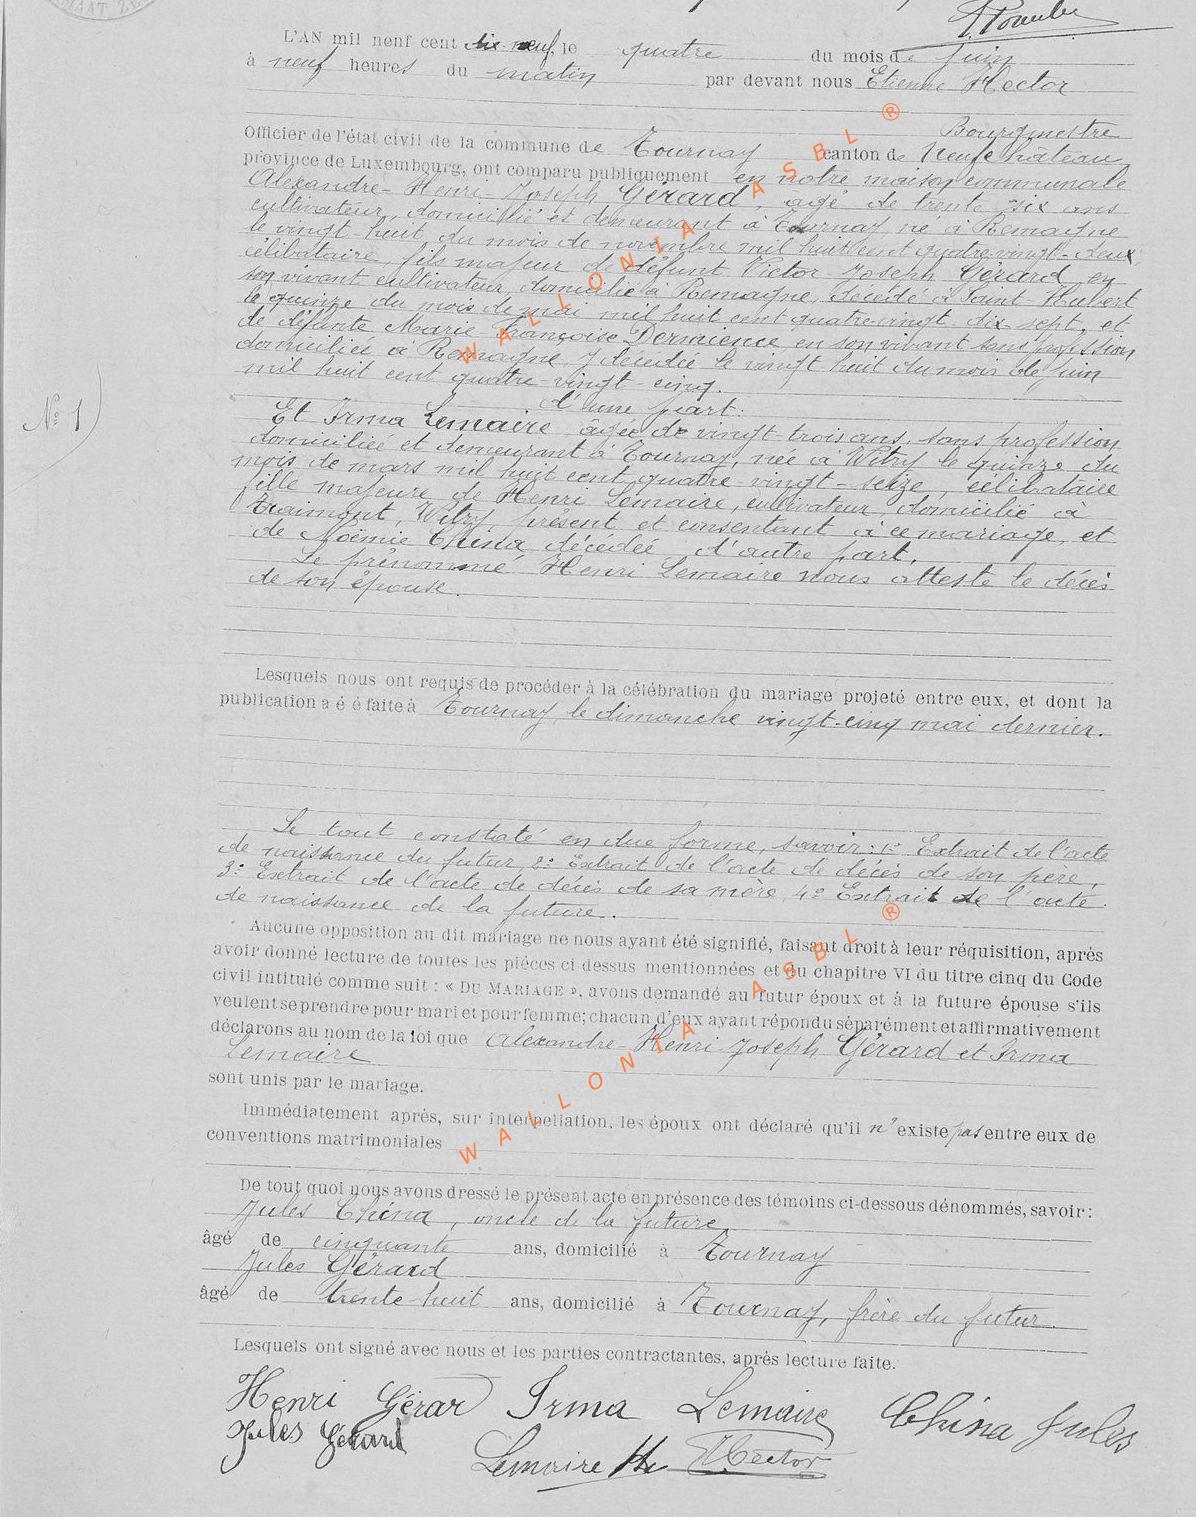 L'AN mil neuf cent dix-neuf, le quatre du mois de juin
à neuf heures du matin par devant nous Etienne Hector
Bourgmestre
Officier de l'état civil de la commune de Tournay canton de Neufchâteau
province de Luxembourg, ont comparu publiquement en notre maison communale
Alexandre-Henri-Joseph Gérard, âgé de trente six ans
cultivateur, domicilié et demeurant à Tournay, né à Remagne
le vingt-huit du mois de novembre mil huit cent quatre-vingt-deux
célibataire, fils majeur de défunt Victor-Joseph Gérard en
son vivant cultivateur, domicilié à Remagne, décédé à Saint-Hubert
le quinze du mois de mai mil huit cent quatre-vingt dix sept, et
de défunte Marie-Françoise Dermience en son vivant sans profession
domiciliée à Remagne y décédée le vingt huit du mois de juin
mil huit cent quatre-vingt-cinq.
d'une part.
Nº 1
Et Irma Lemaire âgée de vingt-trois ans, sans profession
domiciliée et demeurant à Tournay, née à Witry le quinze du
mois de mars mil huit cent quatre-vingt-seize, célibataire
fille majeure de Henri Lemaire, cultivateur, domicilié à
Traimont, Witry, présent et consentant à ce mariage, et
de Noémie China, décédée, d'autre part.
Le prénommé Henri Lemaire nous atteste le décès
de son épouse.
Lesquels nous ont requis de procéder à la célébration du mariage projeté entre eux, et dont la
publication a é é faite à Tournay, le dimanche vingt-cinq mai dernier.
Le tout constaté en due forme, savoir: 1º Extrait de l'acte
de naissance du futur, 2º Extrait de l'acte de décès de son père,
3º Extrait de l'acte de décès de sa mère, 4º Extrait de l'acte
de naissance de la future.
Aucune opposition au dit mariage ne nous ayant été signifié, faisant droit à leur réquisition, après
avoir donné lecture de toutes les pièces ci dessus mentionnées et du chapitre VI du titre cinq du Code
civil intitulé comme suit : « DU MARIAGE », avons demandé au futur époux et à la future épouse s'ils
veulent se prendre pour mari et pour femme; chacun d'eux ayant répondu séparément et affirmativement
déclarons au nom de la loi que Alexandre-Henri-Joseph Gérard et Irma
Lemaire
sont unis par le mariage.
Immédiatement après, sur interpellation, les époux ont déclaré qu'il n'existe pas entre eux de
conventions matrimoniales
De tout quoi nous avons dressé le présent acte en présence des témoins ci-dessous dénommés, savoir:
Jules China, oncle de la future
âgé de cinquante ans, domicilié à Tournay
Jules Gérard
âgé de trente-huit ans, domicilié à Tournay, frère du futur.
Lesquels ont signé avec nous et les parties contractantes, après lecture faite.
Henri Gérard Irma Lemaire China Jules
Jules Gérard
Lemaire H. E Hector
WALLONIA ASBL ®
WALLONIA ASBL ®